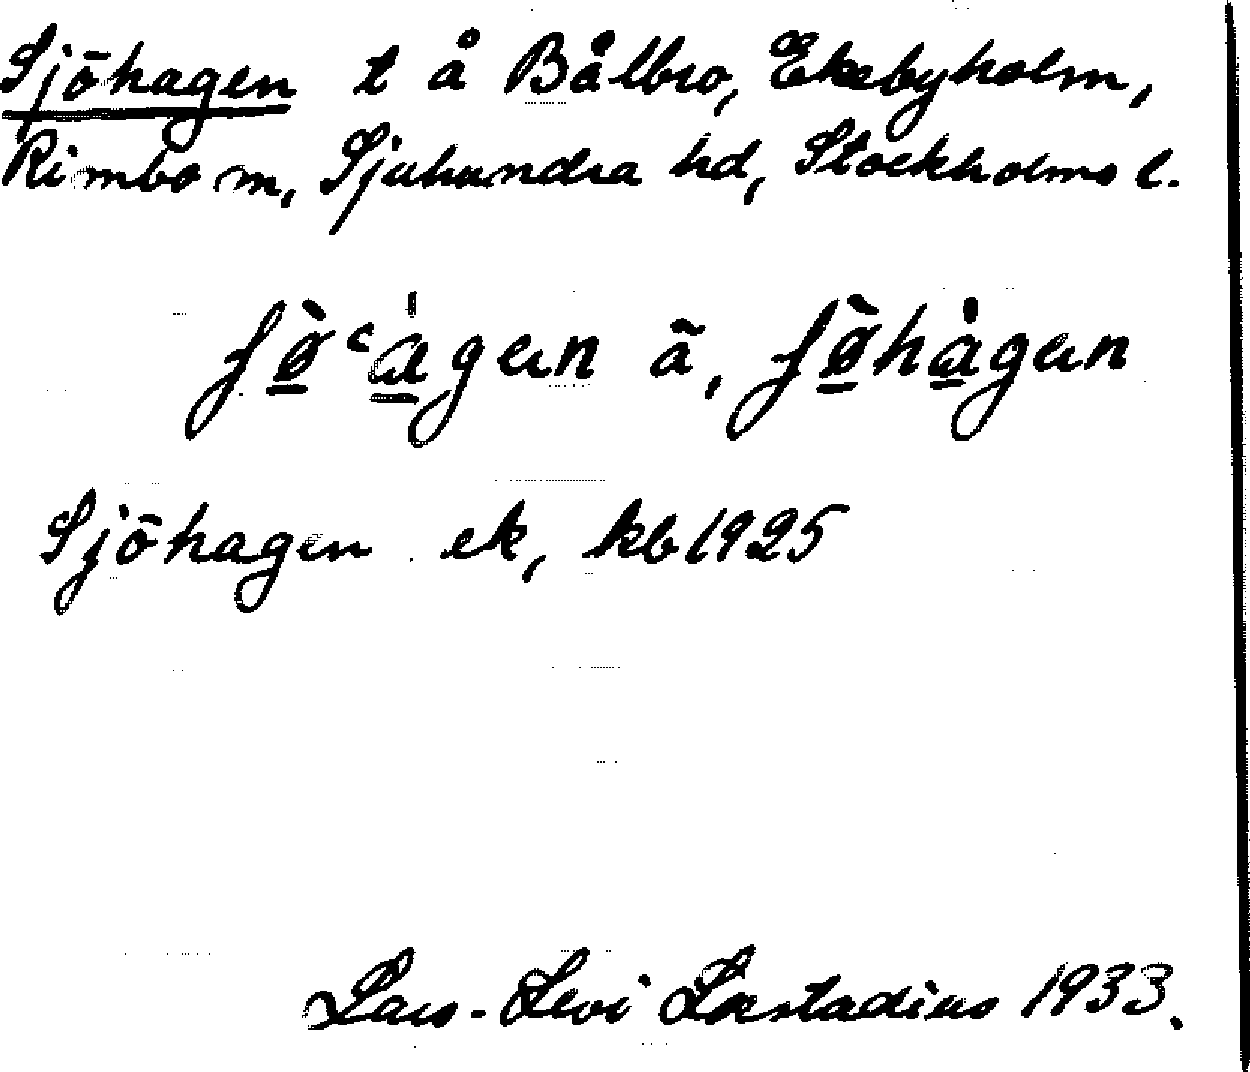 Sjöhagen t å Bålbro, Ekebyholm,
Rimbo sn, Sjuhundra hd, Stockholms l.
ʃø̱̀ʿa̱̍gen ā, ʃø̱̀ha̱̍gen
Sjöhagen ek, kb 1925
Lars-Levi Læstadius 1933.